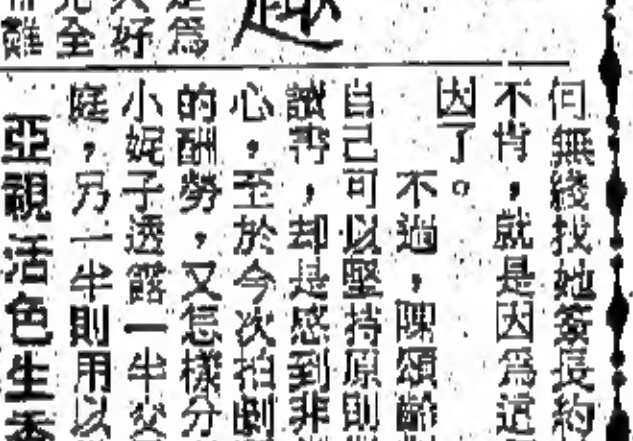 趣
是為
大好
完全
難
何無綫找她簽長約
不肯，就是因為這
因了。
不過，陳頌齡
自己可以堅持原則
誠哥，却是感到非
心，至於今次拍劇
的酬勞，又怎樣分
小妮子透露一半交
庭，另一半則用以
亞視活色生香